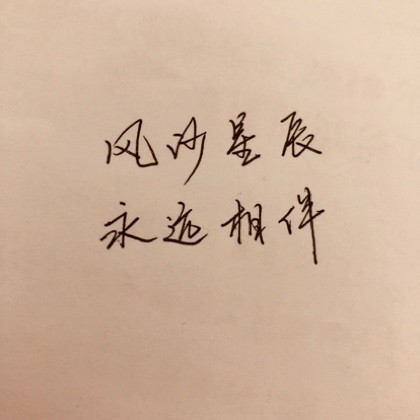 风沙星辰
永远相伴